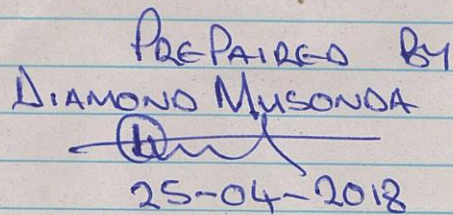 PREPAIRED BY
DIAMOND MUSONDA
25-04-2018